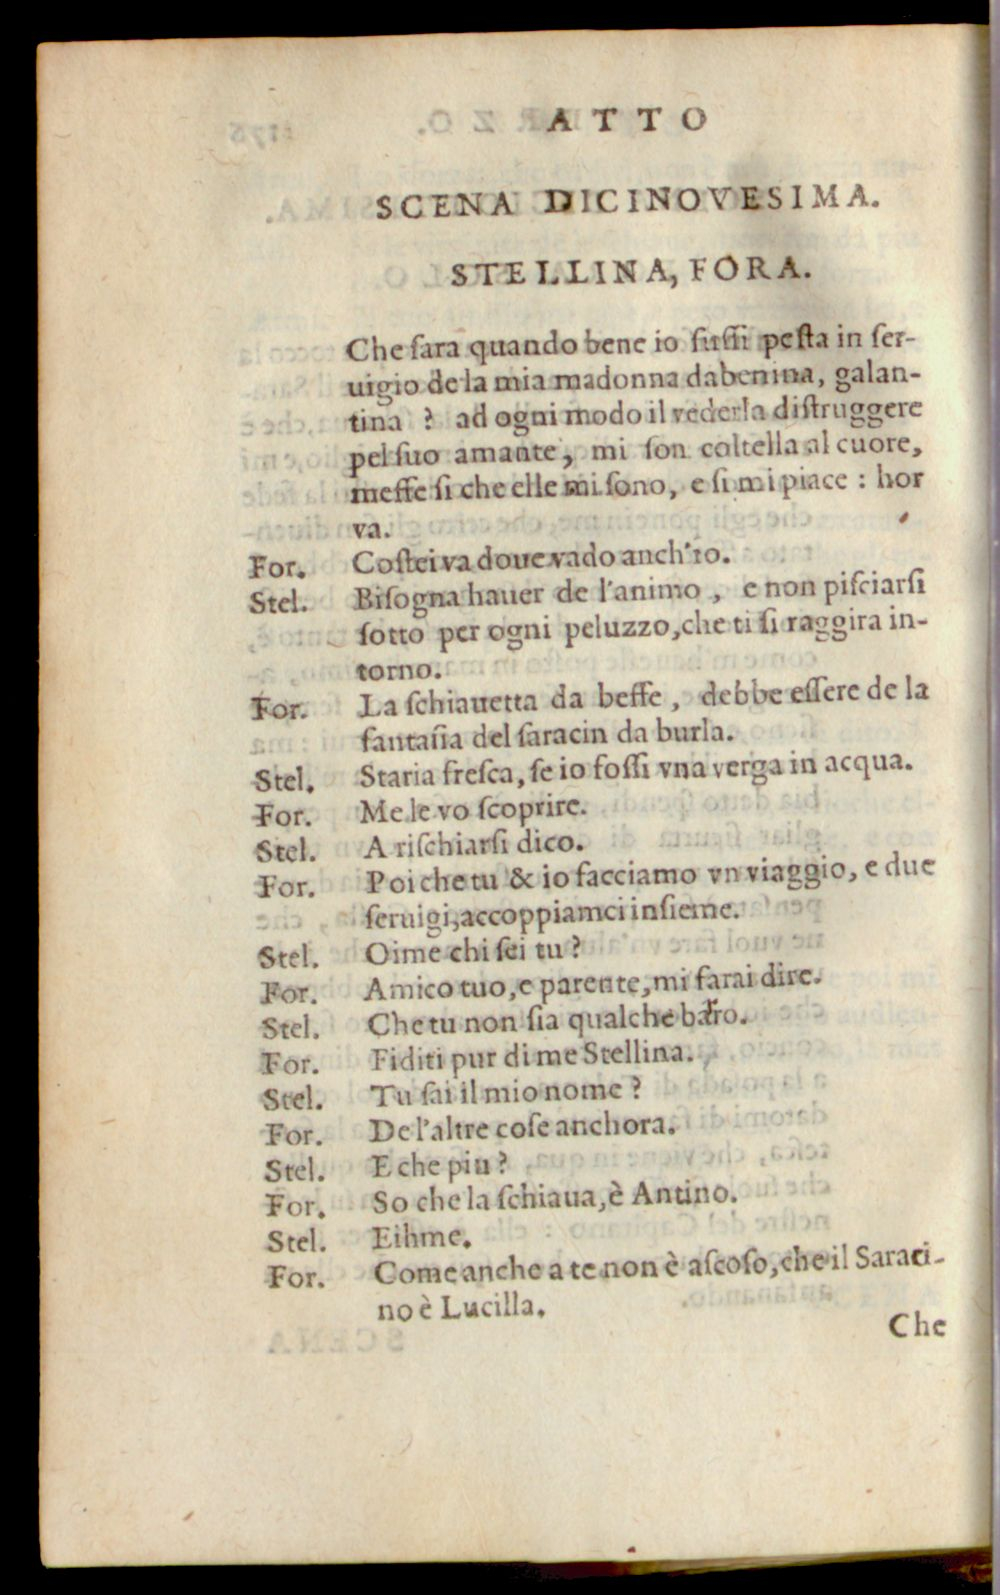 ATTO
SCENA DICINOVESIMA.
STELLINA, FORA.
Che sara quando bene io fussi pesta in ser-
uigio de la mia madonna dabenina, galan-
tina ? ad ogni modo il vederla distruggere
pel suo amante, mi son coltella al cuore,
messe si che elle mi sono, e si mi piace : hor
va.
For. Costei va doue vado anch'io.
Stel. Bisogna hauer de l'animo, e non pisciarsi
sotto per ogni peluzzo, che ti si raggira in-
torno.
For. La schiauetta da beffe, debbe essere de la
fantasia del saracin da burla.
Stel. Staria fresca, se io fossi vna verga in acqua.
For. Me le vo scoprire.
Stel. A rischiarsi dico.
For. Poi che tu & io facciamo vn viaggio, e due
seruigi, accoppiamci insieme.
Stel. Oime chi sei tu ?
For. Amico tuo, e parente, mi farai dire.
Stel. Che tu non sia qualche barro.
For. Fiditi pur di me Stellina.
Stel. Tu sai il mio nome ?
For. De l'altre cose anchora.
Stel. E che piu ?
For. So che la schiaua, è Antino.
Stel. Eihme.
For. Come anche a te non è ascoso, che il Saraci-
no è Lucilla.
Che